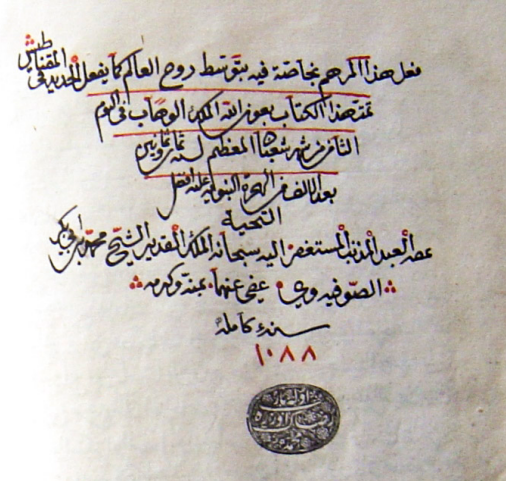 فعل هذا المرهم بخاصة فيه بتوسط روح العالم كما يفعل الحديد في المقناطيس
تمت هذا الكتاب بعون الله الملك الوهاب في اليوم
الثامن شهر شعبان المعظم لسنة ثمان وثمانين
بعد الالف من الهجرة النبوية عليه افضل
التحية
العبد المذنب المستغفر اليه سبحانه الملك القدير الشيخ محمد بن ابي بكر
الصوفيه وي عفى عنهما بمنه وكرمه
سنة كاملة
١٠٨٨